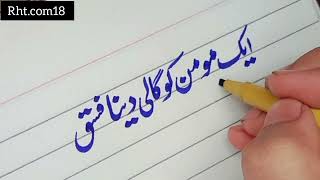 Rht.com18
ایک مومن کو گالی دینا فسق